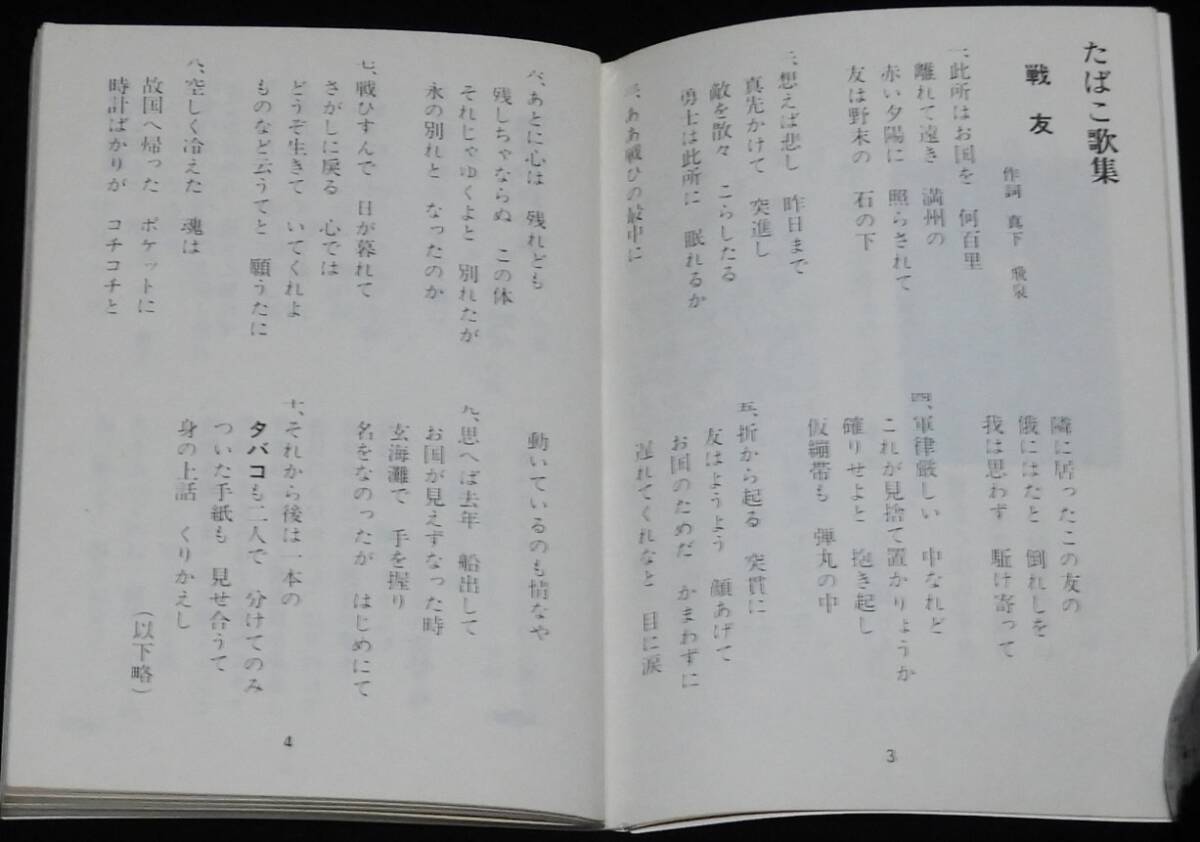 たばこ歌集
戦友
作詞 真下 飛泉
一、此所はお国を 何百里
離れて遠き 満州の
赤い夕陽に 照らされて
友は野末の 石の下
二、想えば悲し 昨日まで
真先かけて 突進し
敵を散々 こらしたる
勇士は此所に 眠れるか
三、ああ戦ひの最中に
隣に居ったこの友の
俄にはたと 倒れしを
我は思わず 駈け寄って
四、軍律厳しい 中なれど
これが見捨て置かりょうか
確りせよと 抱き起し
仮繃帯も 弾丸の中
五、折から起る 突貫に
友はようよう 顔あげて
お国のためだ かまわずに
遅れてくれなと 目に涙
3
六、あとに心は 残れども
残しちゃならぬ この体
それじゃゆくよと 別れたが
永の別れと なったのか
七、戦ひすんで 日が暮れて
さがしに戻る 心では
どうぞ生きて いてくれよ
ものなど云うてと 願うたに
八、空しく冷えた 魂は
故国へ帰った ポケットに
時計ばかりが コチコチと
動いているのも情なや
九、思へば去年 船出して
お国が見えずなった時
玄海灘で 手を握り
名をなのったが はじめにて
十、それから後は一本の
タバコも二人で 分けてのみ
ついた手紙も 見せ合うて
身の上話 くりかえし
(以下略)
4